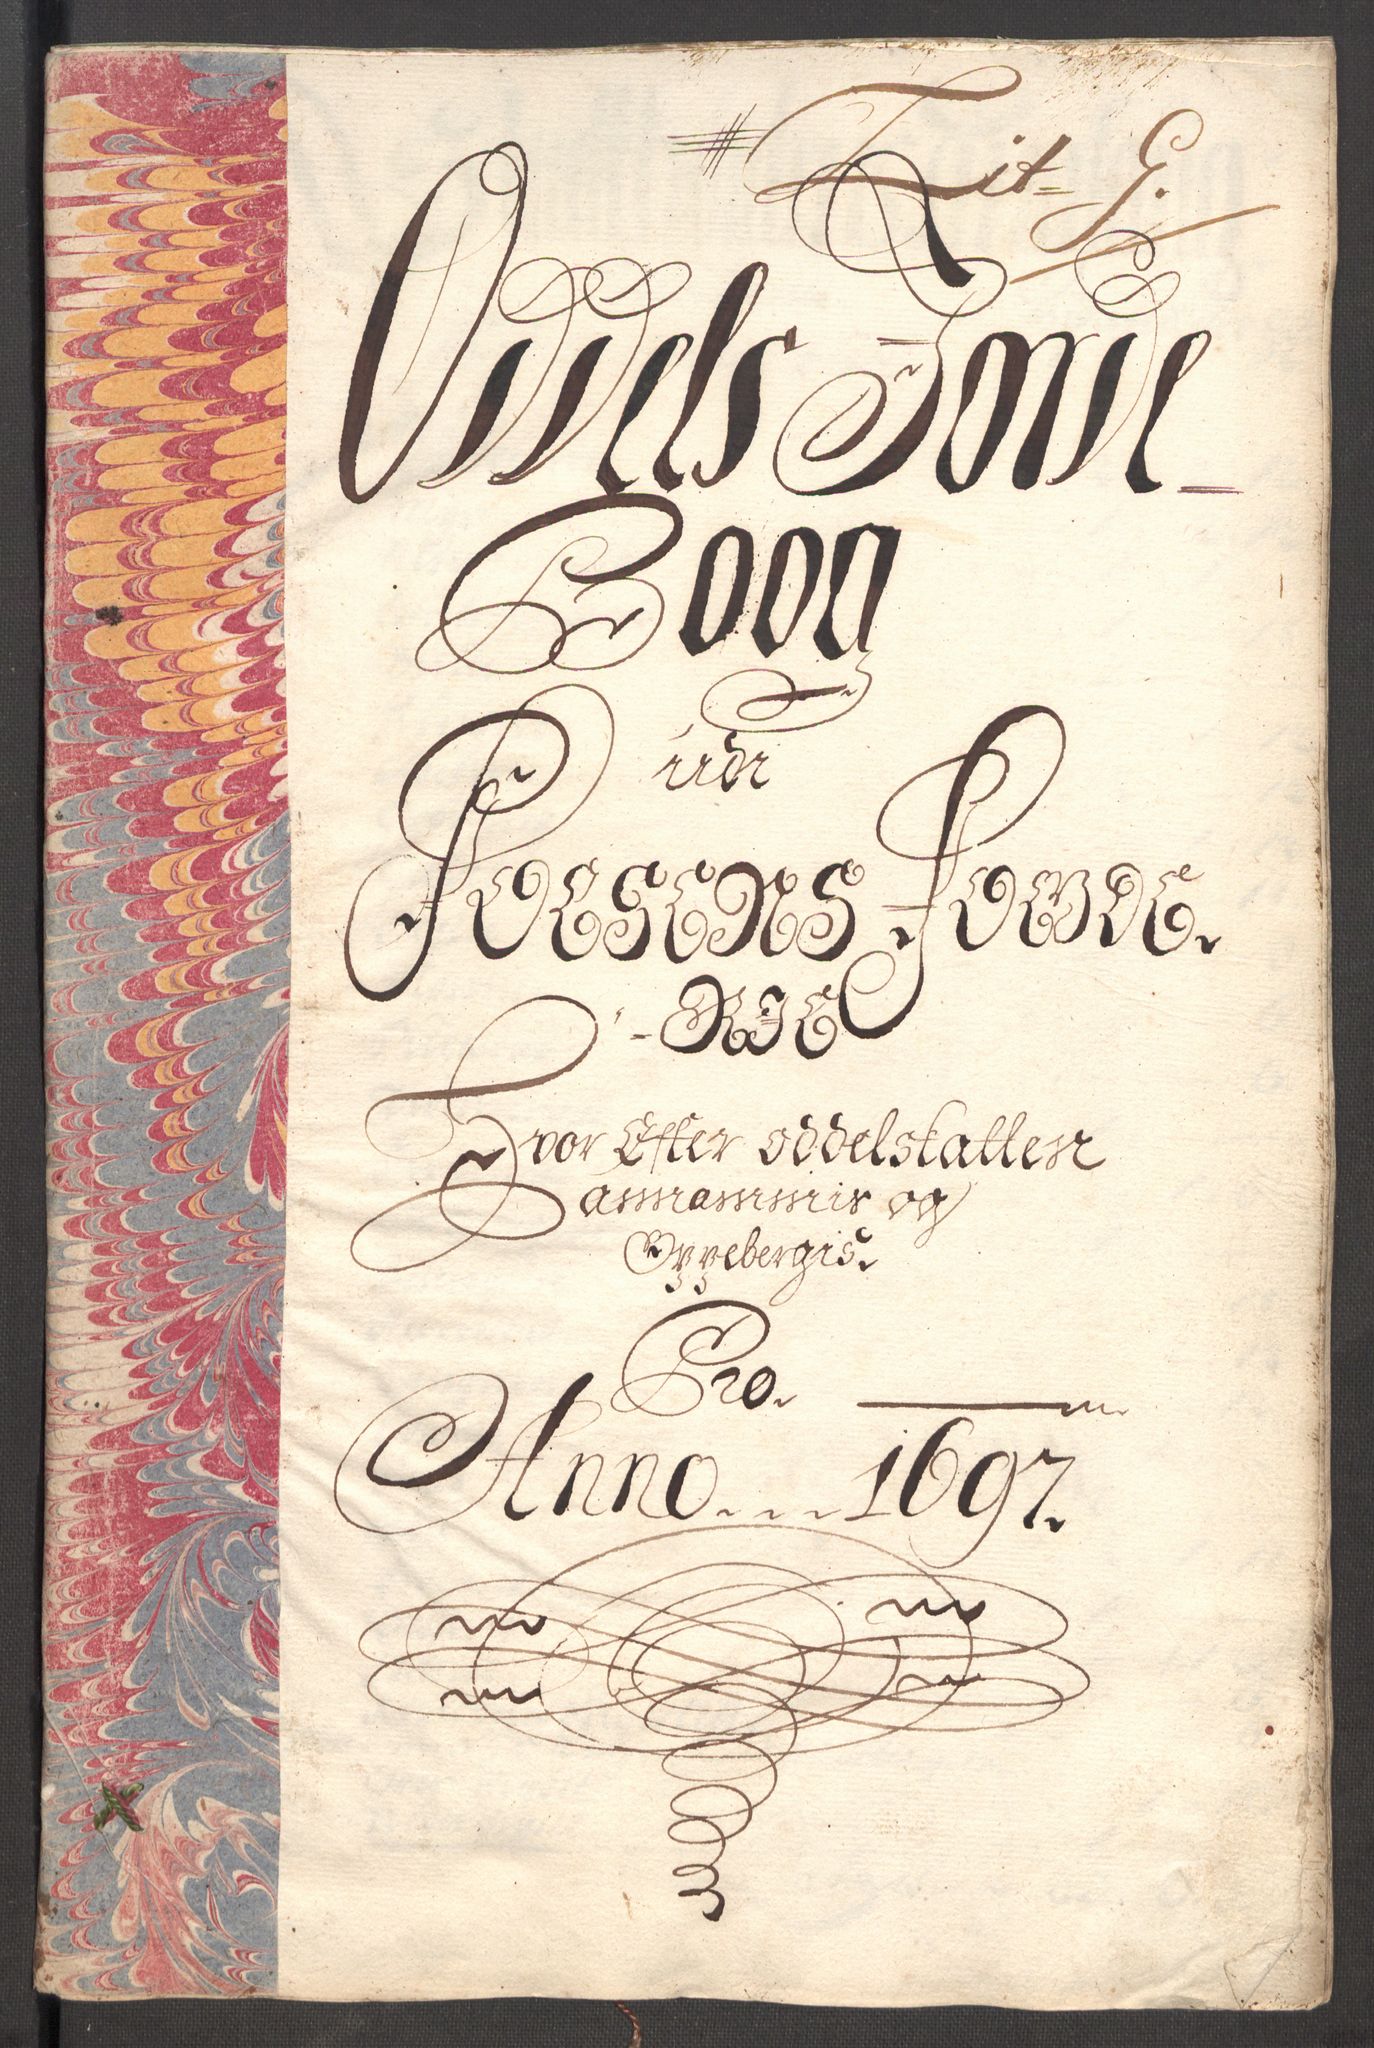 Lit- G.
Oddels Jorde-
Boog
udi
Foesens Foegde-
RIE
Hvor Efter oddelskatten
annammis og
Oppebergis.
Pro.
Anno... 1697.